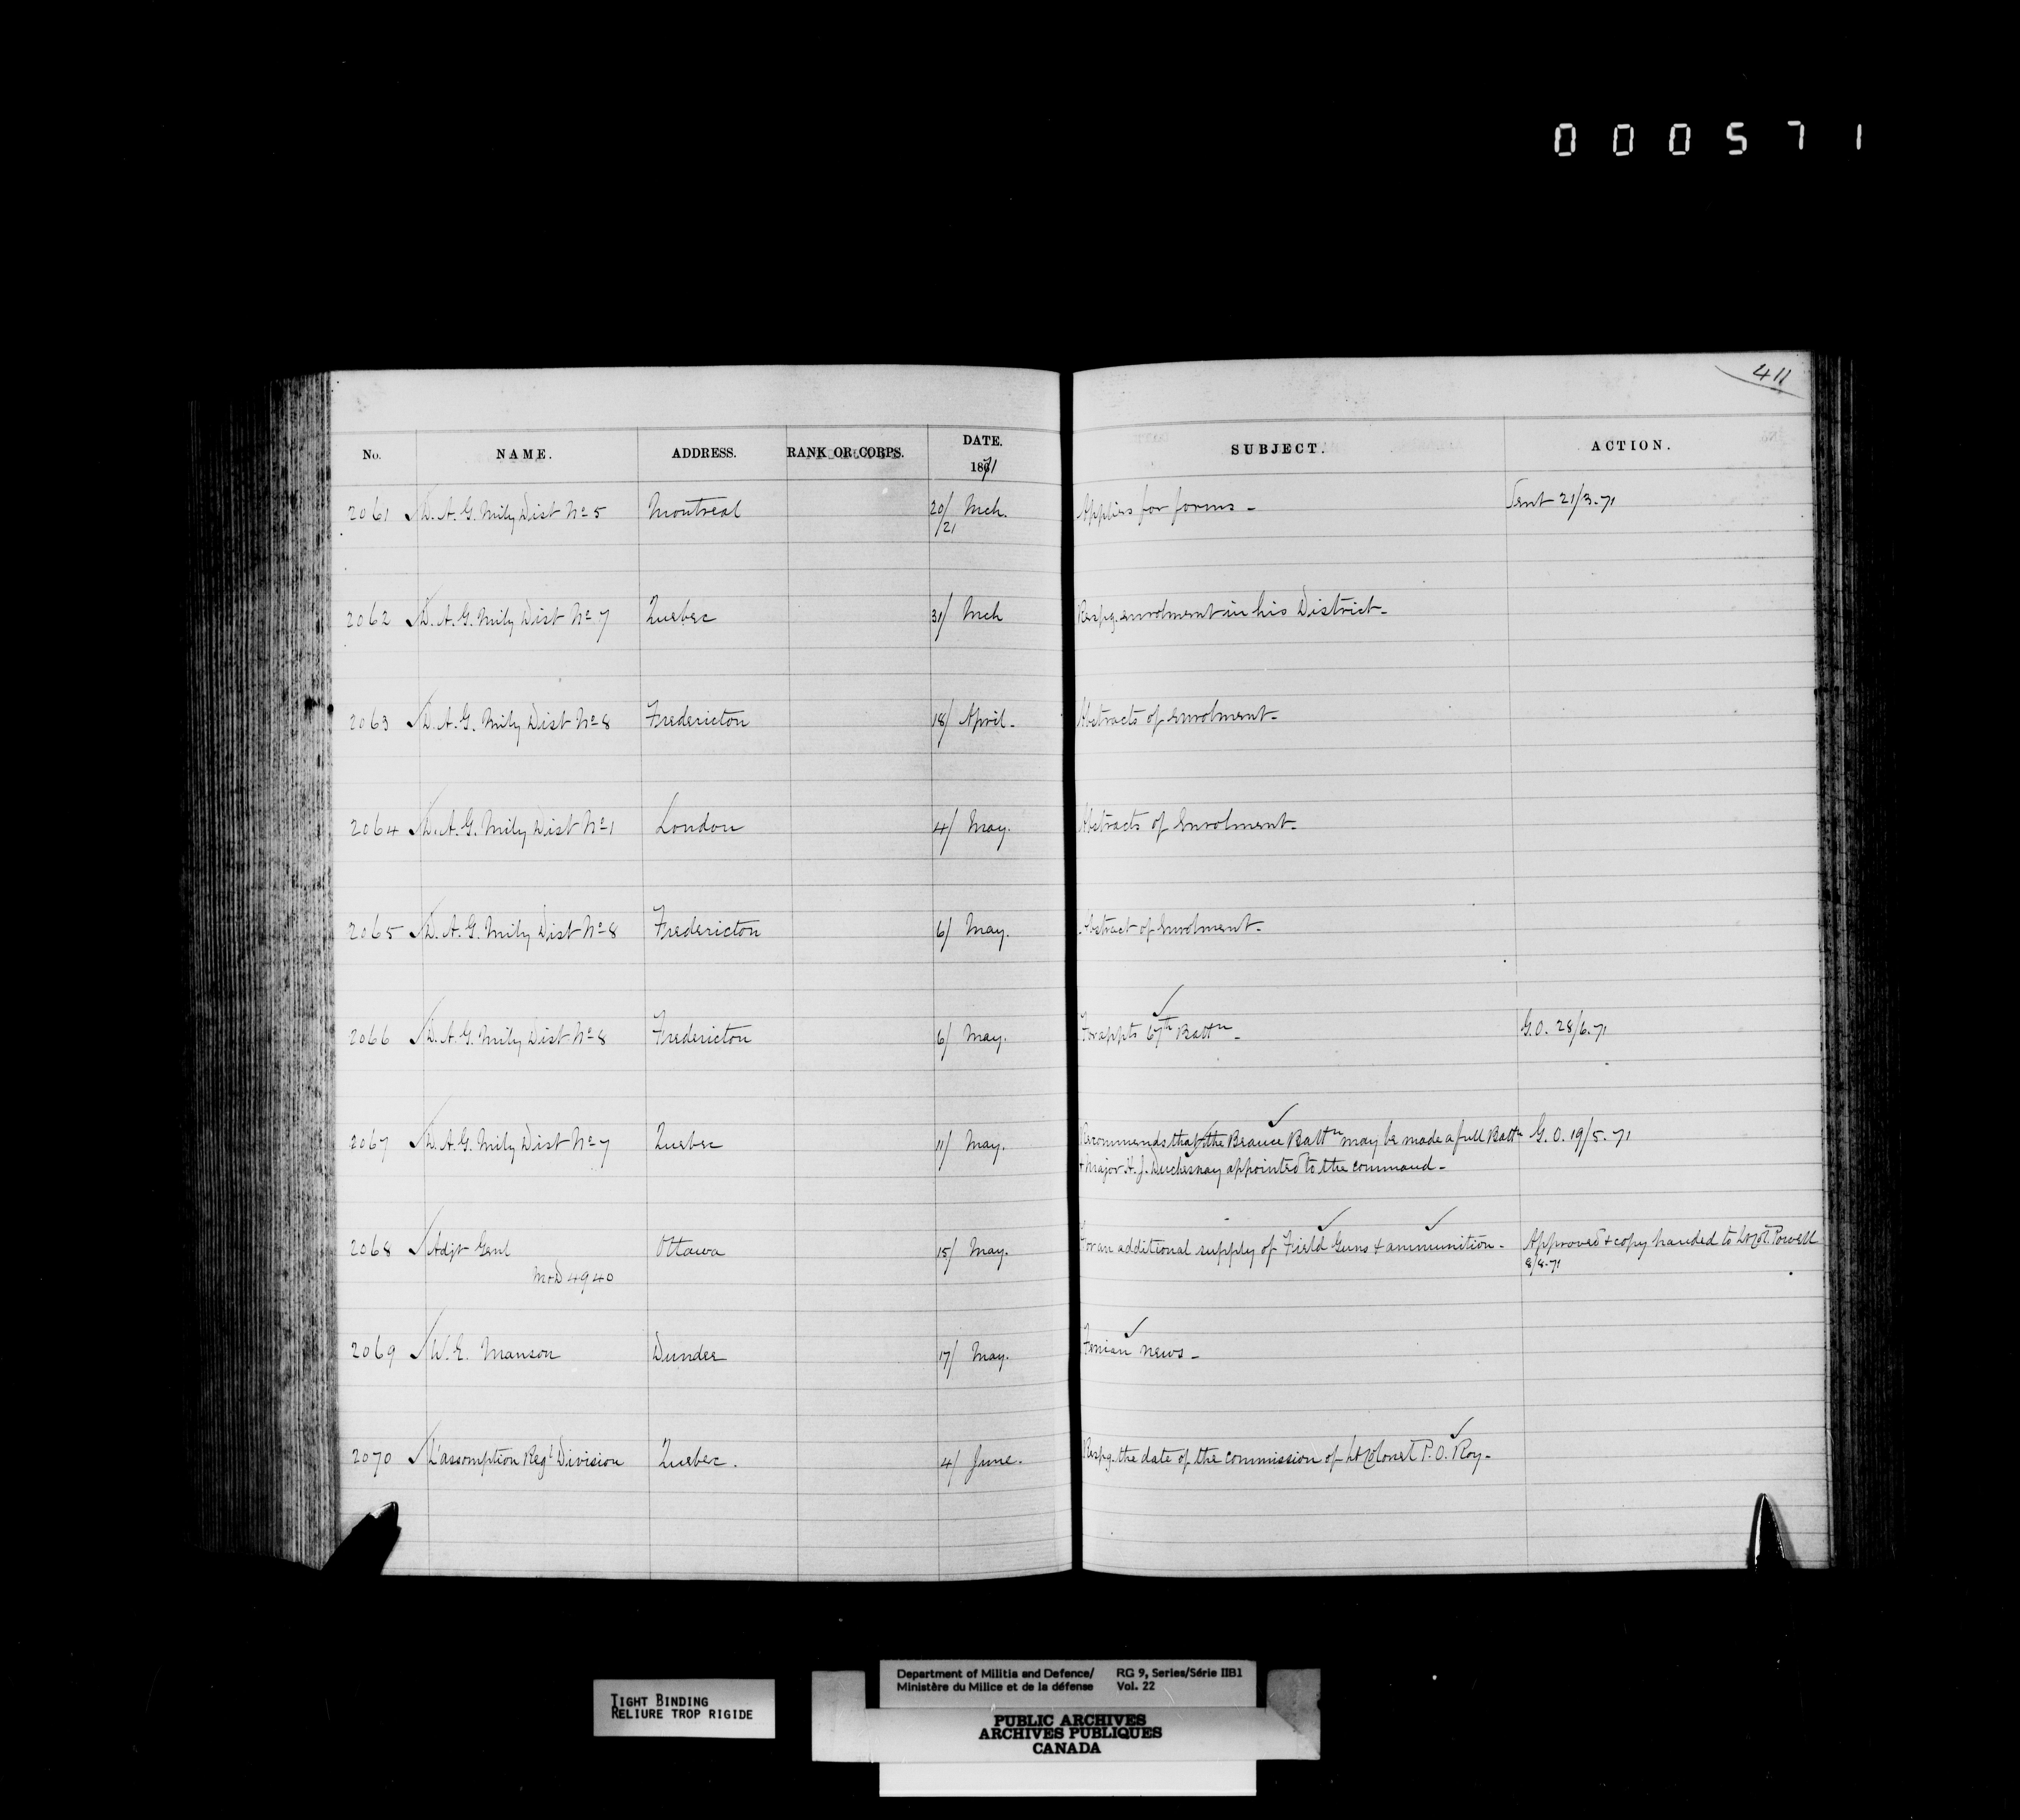 000571
411
No. NAME. ADDRESS. RANK OR CORPS. DATE. 1871 SUBJECT. ACTION.
2061 D.A.G. Mily Dist No 5 Montreal 20/21 Mch. Applies for forms - Sent 21/3.71
2062 D.A.G. Mily Dist No 7 Quebec 31/ Mch Respg. enrolment in his District -
2063 D.A.G. Mily Dist No 8 Fredericton 18/ April - Abstracts of enrolment -
2064 D.A.G. Mily Dist No 1 London 4/ May. Abstracts of Enrolment -
2065 D.A.G. Mily Dist No 8 Fredericton 6/ May. Abstract of Enrolment -
2066 D.A.G. Mily Dist No 8 Fredericton 6/ May. For appts 67th Battn - G.O. 28/6.71
2067 D.A.G. Mily Dist No 7 Quebec 11/ May. Recommends that the Beauce Battn may be made a full Battn G.O. 19/5.71
+ Major H. J. Duchesnay appointed to the command -
2068 Adjt Genl Ottawa 15/ May. For an additional supply of Field Guns + ammunition - Approved + copy handed to Lt Col. Powell
M+D 4940 8/8.71
2069 W. E. Manson Dundee 17/ May. Fenian news -
2070 L'assomption Regl Division Quebec. 4/ June. Respg. the date of the commission of Lt Colonel P. O. Roy -
TIGHT BINDING
RELIURE TROP RIGIDE
Department of Militia and Defence/ RG 9, Series/Série IIB1
Ministère du Milice et de la défense Vol. 22
PUBLIC ARCHIVES
ARCHIVES PUBLIQUES
CANADA